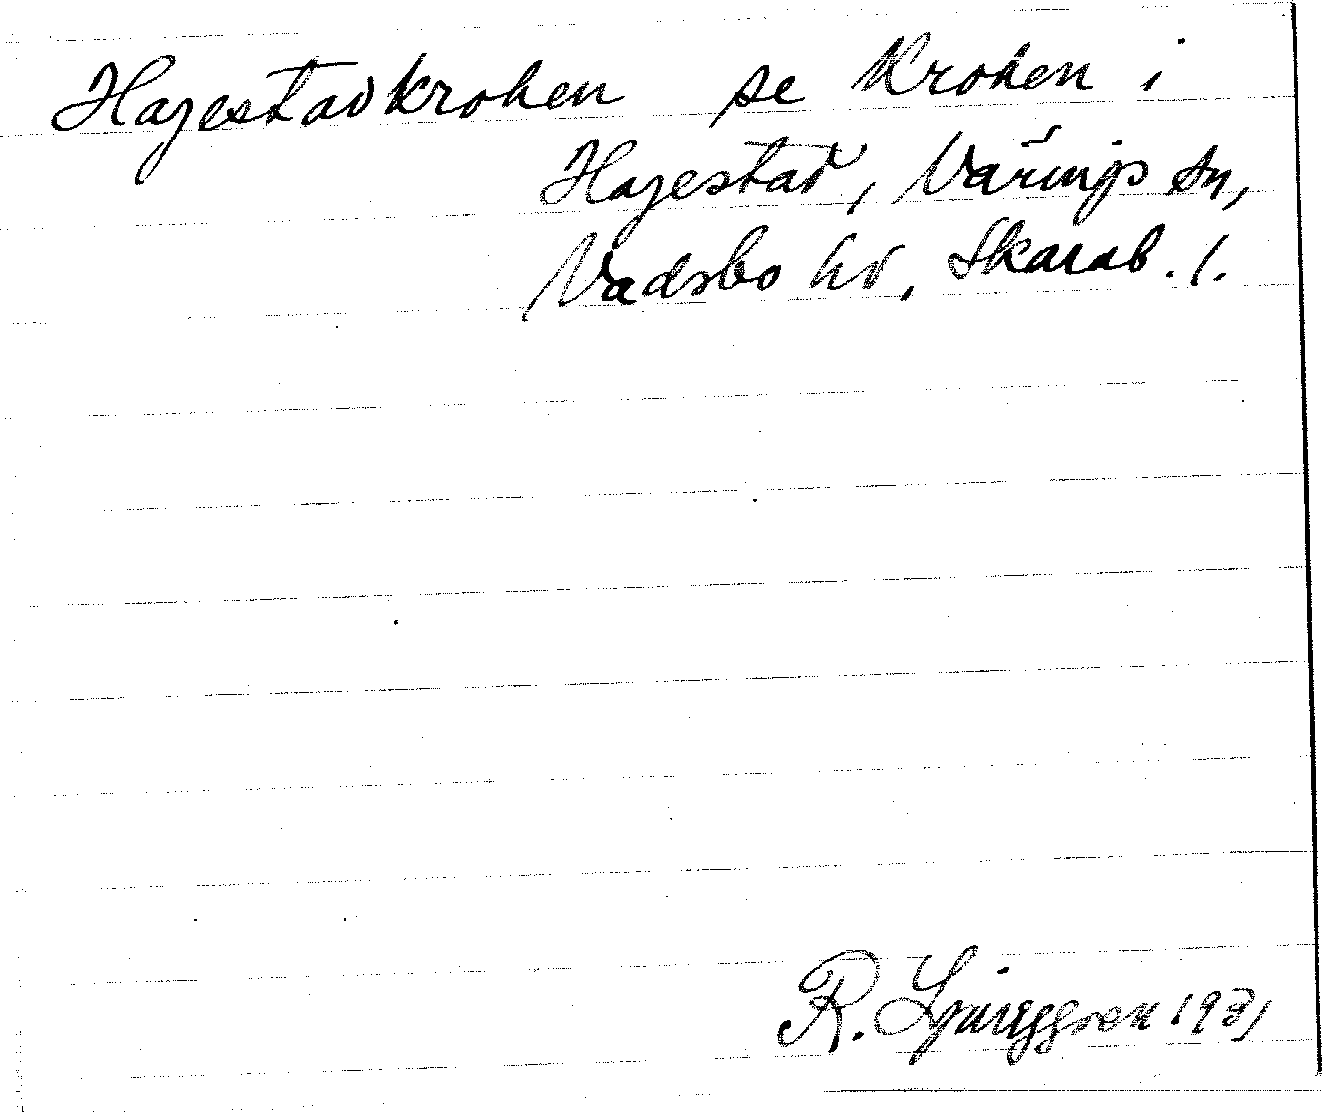 Hajestadkroken se Kroken i
Hajestad, Värings sn,
Vadsbo hd, Skarab. l.
R. Ljunggren 1931